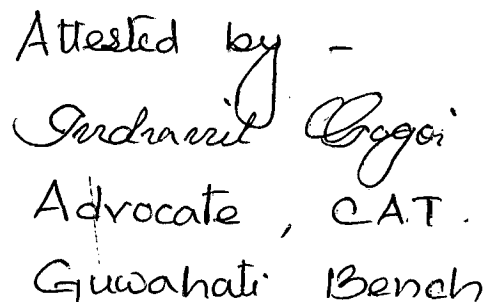 Attested by -
Indranil Gogoi
Advocate, C.A.T.
Guwahati Bench